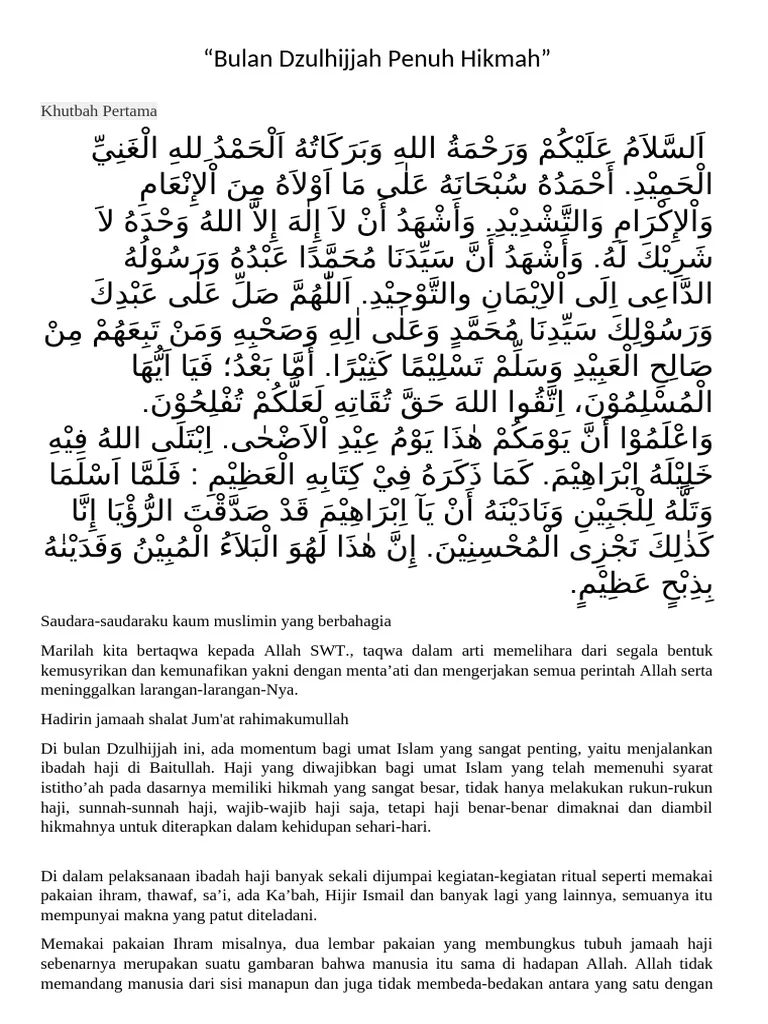 “Bulan Dzulhijjah Penuh Hikmah”
Khutbah Pertama
اَلسَّلاَمُ عَلَيْكُمْ وَرَحْمَةُ اللهِ وَبَرَكَاتُهُ اَلْحَمْدُ ِللهِ الْغَنِيِّ
الْحَمِيْدِ. أَحْمَدُهُ سُبْحَانَهُ عَلٰى مَا اَوْلاَهُ مِنَ اْلاِنْعَامِ
وَاْلاِكْرَامِ وَالتَّشْدِيْدِ. وَأَشْهَدُ أَنْ لاَ إِلٰهَ إِلاَّ اللهُ وَحْدَهُ لاَ
شَرِيْكَ لَهُ. وَأَشْهَدُ أَنَّ سَيِّدَنَا مُحَمَّدًا عَبْدُهُ وَرَسُوْلُهُ
الدَّاعِى اِلَى اْلاِيْمَانِ والتَّوْحِيْدِ. اَللّٰهُمَّ صَلِّ عَلٰى عَبْدِكَ
وَرَسُوْلِكَ سَيِّدِنَا مُحَمَّدٍ وَعَلٰى اٰلِهِ وَصَحْبِهِ وَمَنْ تَبِعَهُمْ مِنْ
صَالِحِ الْعَبِيْدِ وَسَلِّمْ تَسْلِيْمًا كَثِيْرًا. أَمَّا بَعْدُ؛ فَيَا اَيُّهَا
الْمُسْلِمُوْنَ، اِتَّقُوا اللهَ حَقَّ تُقَاتِهِ لَعَلَّكُمْ تُفْلِحُوْنَ.
وَاعْلَمُوْا أَنَّ يَوْمَكُمْ هٰذَا يَوْمُ عِيْدِ اْلاَضْحٰى. اِبْتَلَى اللهُ فِيْهِ
خَلِيْلَهُ اِبْرَاهِيْمَ. كَمَا ذَكَرَهُ فِيْ كِتَابِهِ الْعَظِيْمِ : فَلَمَّا اَسْلَمَا
وَتَلَّهُ لِلْجَبِيْنِ وَنَادَيْنَهُ أَنْ يَآ اِبْرَاهِيْمَ قَدْ صَدَّقْتَ الرُّؤْيَا إِنَّا
كَذٰلِكَ نَجْزِى الْمُحْسِنِيْنَ. إِنَّ هٰذَا لَهُوَ الْبَلاَءُ الْمُبِيْنُ وَفَدَيْنٰهُ
بِذِبْحٍ عَظِيْمٍ.
Saudara-saudaraku kaum muslimin yang berbahagia
Marilah kita bertaqwa kepada Allah SWT., taqwa dalam arti memelihara dari segala bentuk
kemusyrikan dan kemunafikan yakni dengan menta’ati dan mengerjakan semua perintah Allah serta
meninggalkan larangan-larangan-Nya.
Hadirin jamaah shalat Jum'at rahimakumullah
Di bulan Dzulhijjah ini, ada momentum bagi umat Islam yang sangat penting, yaitu menjalankan
ibadah haji di Baitullah. Haji yang diwajibkan bagi umat Islam yang telah memenuhi syarat
istitho’ah pada dasarnya memiliki hikmah yang sangat besar, tidak hanya melakukan rukun-rukun
haji, sunnah-sunnah haji, wajib-wajib haji saja, tetapi haji benar-benar dimaknai dan diambil
hikmahnya untuk diterapkan dalam kehidupan sehari-hari.
Di dalam pelaksanaan ibadah haji banyak sekali dijumpai kegiatan-kegiatan ritual seperti memakai
pakaian ihram, thawaf, sa’i, ada Ka’bah, Hijir Ismail dan banyak lagi yang lainnya, semuanya itu
mempunyai makna yang patut diteladani.
Memakai pakaian Ihram misalnya, dua lembar pakaian yang membungkus tubuh jamaah haji
sebenarnya merupakan suatu gambaran bahwa manusia itu sama di hadapan Allah. Allah tidak
memandang manusia dari sisi manapun dan juga tidak membeda-bedakan antara yang satu dengan